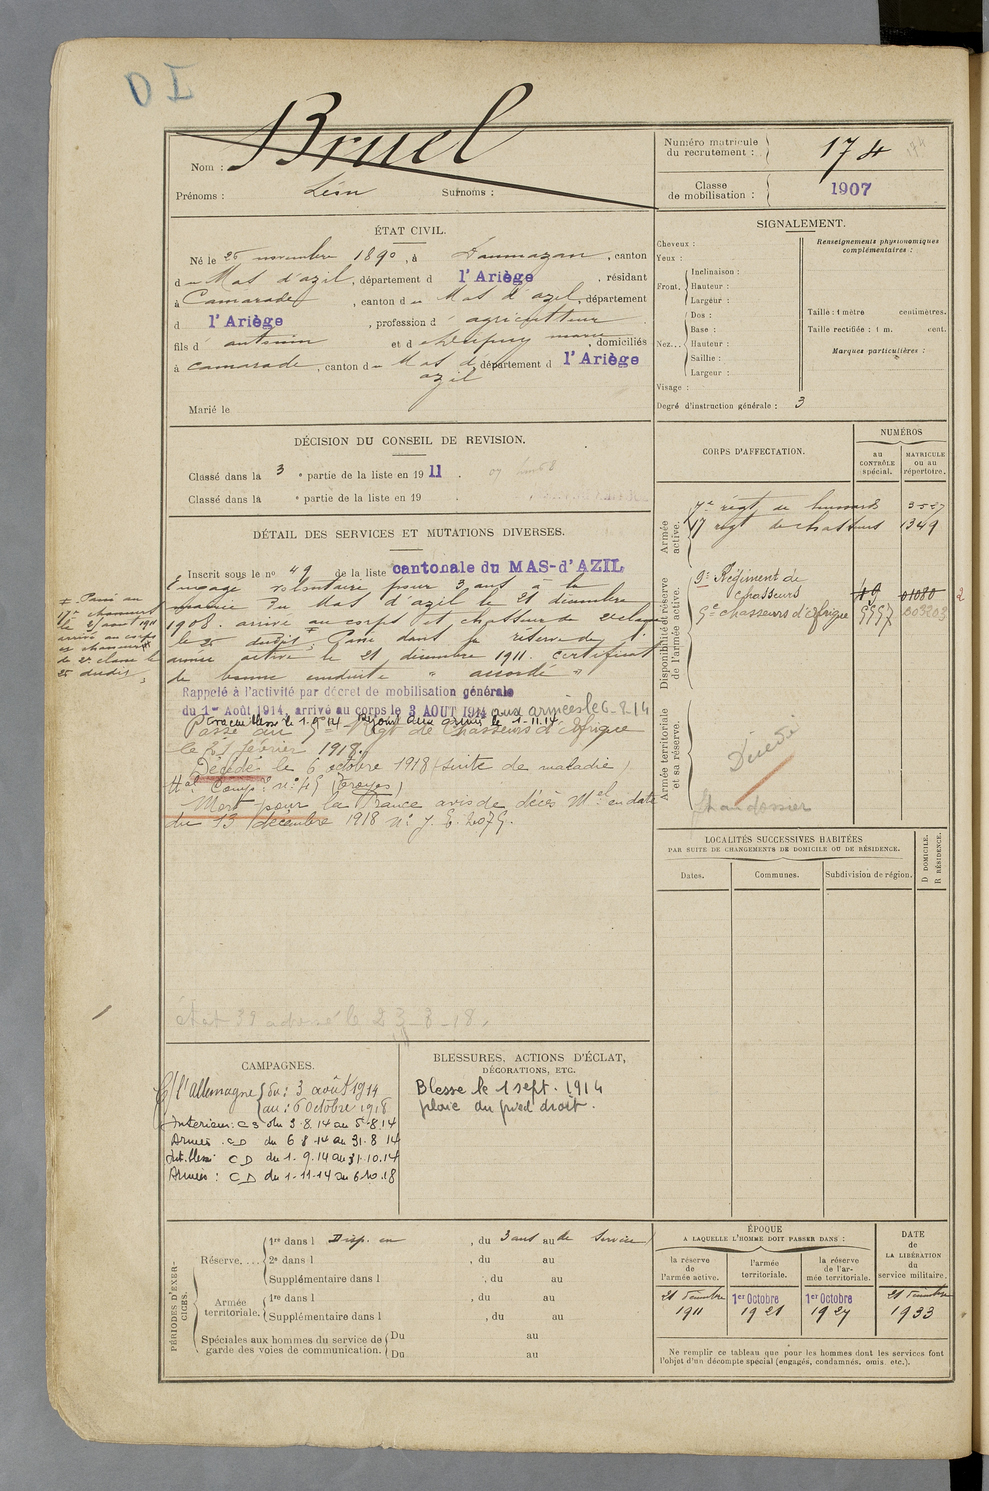 Bruel
Nom :
Prénoms : Léon Surnoms :
Numéro matricule du recrutement : 174
Classe de mobilisation : 1907
ÉTAT CIVIL.
Né le 26 novembre 1890, à Daumazan, canton
du Mas d'azil, département d l'Ariège, résidant
à Camarade, canton du Mas d'azil, département
d l'Ariège, profession d'agriculteur
fils d'antonin et d Dupuy marie, domiciliés
à Camarade, canton du Mas d'azil département d l'Ariège
Marié le
SIGNALEMENT.
Cheveux :
Yeux :
Front. Inclinaison :
Hauteur :
Largeur :
Nez... Dos :
Base :
Hauteur :
Saillie :
Largeur :
Visage :
Renseignements physionomiques complémentaires :
Taille : 1 mètre centimètres.
Taille rectifiée : 1 m. cent.
Marques particulières :
Degré d'instruction générale : 3
DÉCISION DU CONSEIL DE REVISION.
Classé dans la 3e partie de la liste en 1911.
Classé dans la e partie de la liste en 19 .
DÉTAIL DES SERVICES ET MUTATIONS DIVERSES.
Inscrit sous le no 49 de la liste cantonale du MAS-d'AZIL
Engagé volontaire pour 3 ans à la
mairie du Mas d'azil le 21 décembre
1908. arrivé au corps et chasseur de 2e classe
le 25 dudit. Passé dans la réserve de l'
armée active le 21 décembre 1911. certificat
de bonne conduite "accordé"
Passé au
17e chasseurs
le 25 aout 1911
arrivé au corps
et chasseur
de 2e classe le
25 dudit
Rappelé à l'activité par décret de mobilisation générale
du 1er Août 1914, arrivé au corps le 3 AOUT 1914 aux armées le 6-8-14
Evacué blessé le 1-9-14 Rejoint aux armées le 1-11-14
Passé au 5e Régt de Chasseurs d'Afrique
le 21 février 1918.
Décédé le 6 octobre 1918 (suite de maladie)
Hal Compre no 45 (Troyes)
Mort pour la France avis de décès Mel en date
du 13 décembre 1918 no J. E. 2075.
CORPS D'AFFECTATION.
NUMÉROS
au CONTRÔLE spécial.
MATRICULE ou au répertoire.
Armée active.
7e régt de hussards 3557
17 régt de chasseurs 1349
Disponibilité et réserve de l'armée active.
9e Régiment de
chasseurs 19 01080 2
5e chasseurs d'Afrique 5557 003203
Armée territoriale et sa réserve.
Décédé
LOCALITÉS SUCCESSIVES HABITÉES
PAR SUITE DE CHANGEMENTS DE DOMICILE OU DE RÉSIDENCE.
Dates. Communes. Subdivision de région. D DOMICILE. R RÉSIDENCE.
CAMPAGNES.
C/ l'Allemagne du : 3 août 1914
au : 6 Octobre 1918
Intérieur : CS du 3.8.14 au 5.8.14
Armées : CD du 6.8.14 au 31.8.14
Int. bless : CD du 1.9.14 au 31.10.14
Armées : CD du 1.11.14 au 6.10.18
BLESSURES, ACTIONS D'ÉCLAT,
DÉCORATIONS, ETC.
Blessé le 1 sept. 1914
plaie au pied droit.
PÉRIODES D'EXERCICES.
Réserve.... 1re dans l Disp. en , du 3 ans au de service
2e dans l , du au
Supplémentaire dans l , du au
Armée territoriale. 1re dans l , du au
Supplémentaire dans l , du au
Spéciales aux hommes du service de garde des voies de communication. Du au
Du au
ÉPOQUE
A LAQUELLE L'HOMME DOIT PASSER DANS :
la réserve de l'armée active.
l'armée territoriale.
la réserve de l'armée territoriale.
DATE DE LA LIBÉRATION du service militaire.
21 Xembre 1911
1er Octobre 1921
1er Octobre 1927
21 Xembre 1933
Ne remplir ce tableau que pour les hommes dont les services font
l'objet d'un décompte spécial (engagés, condamnés, omis, etc.).